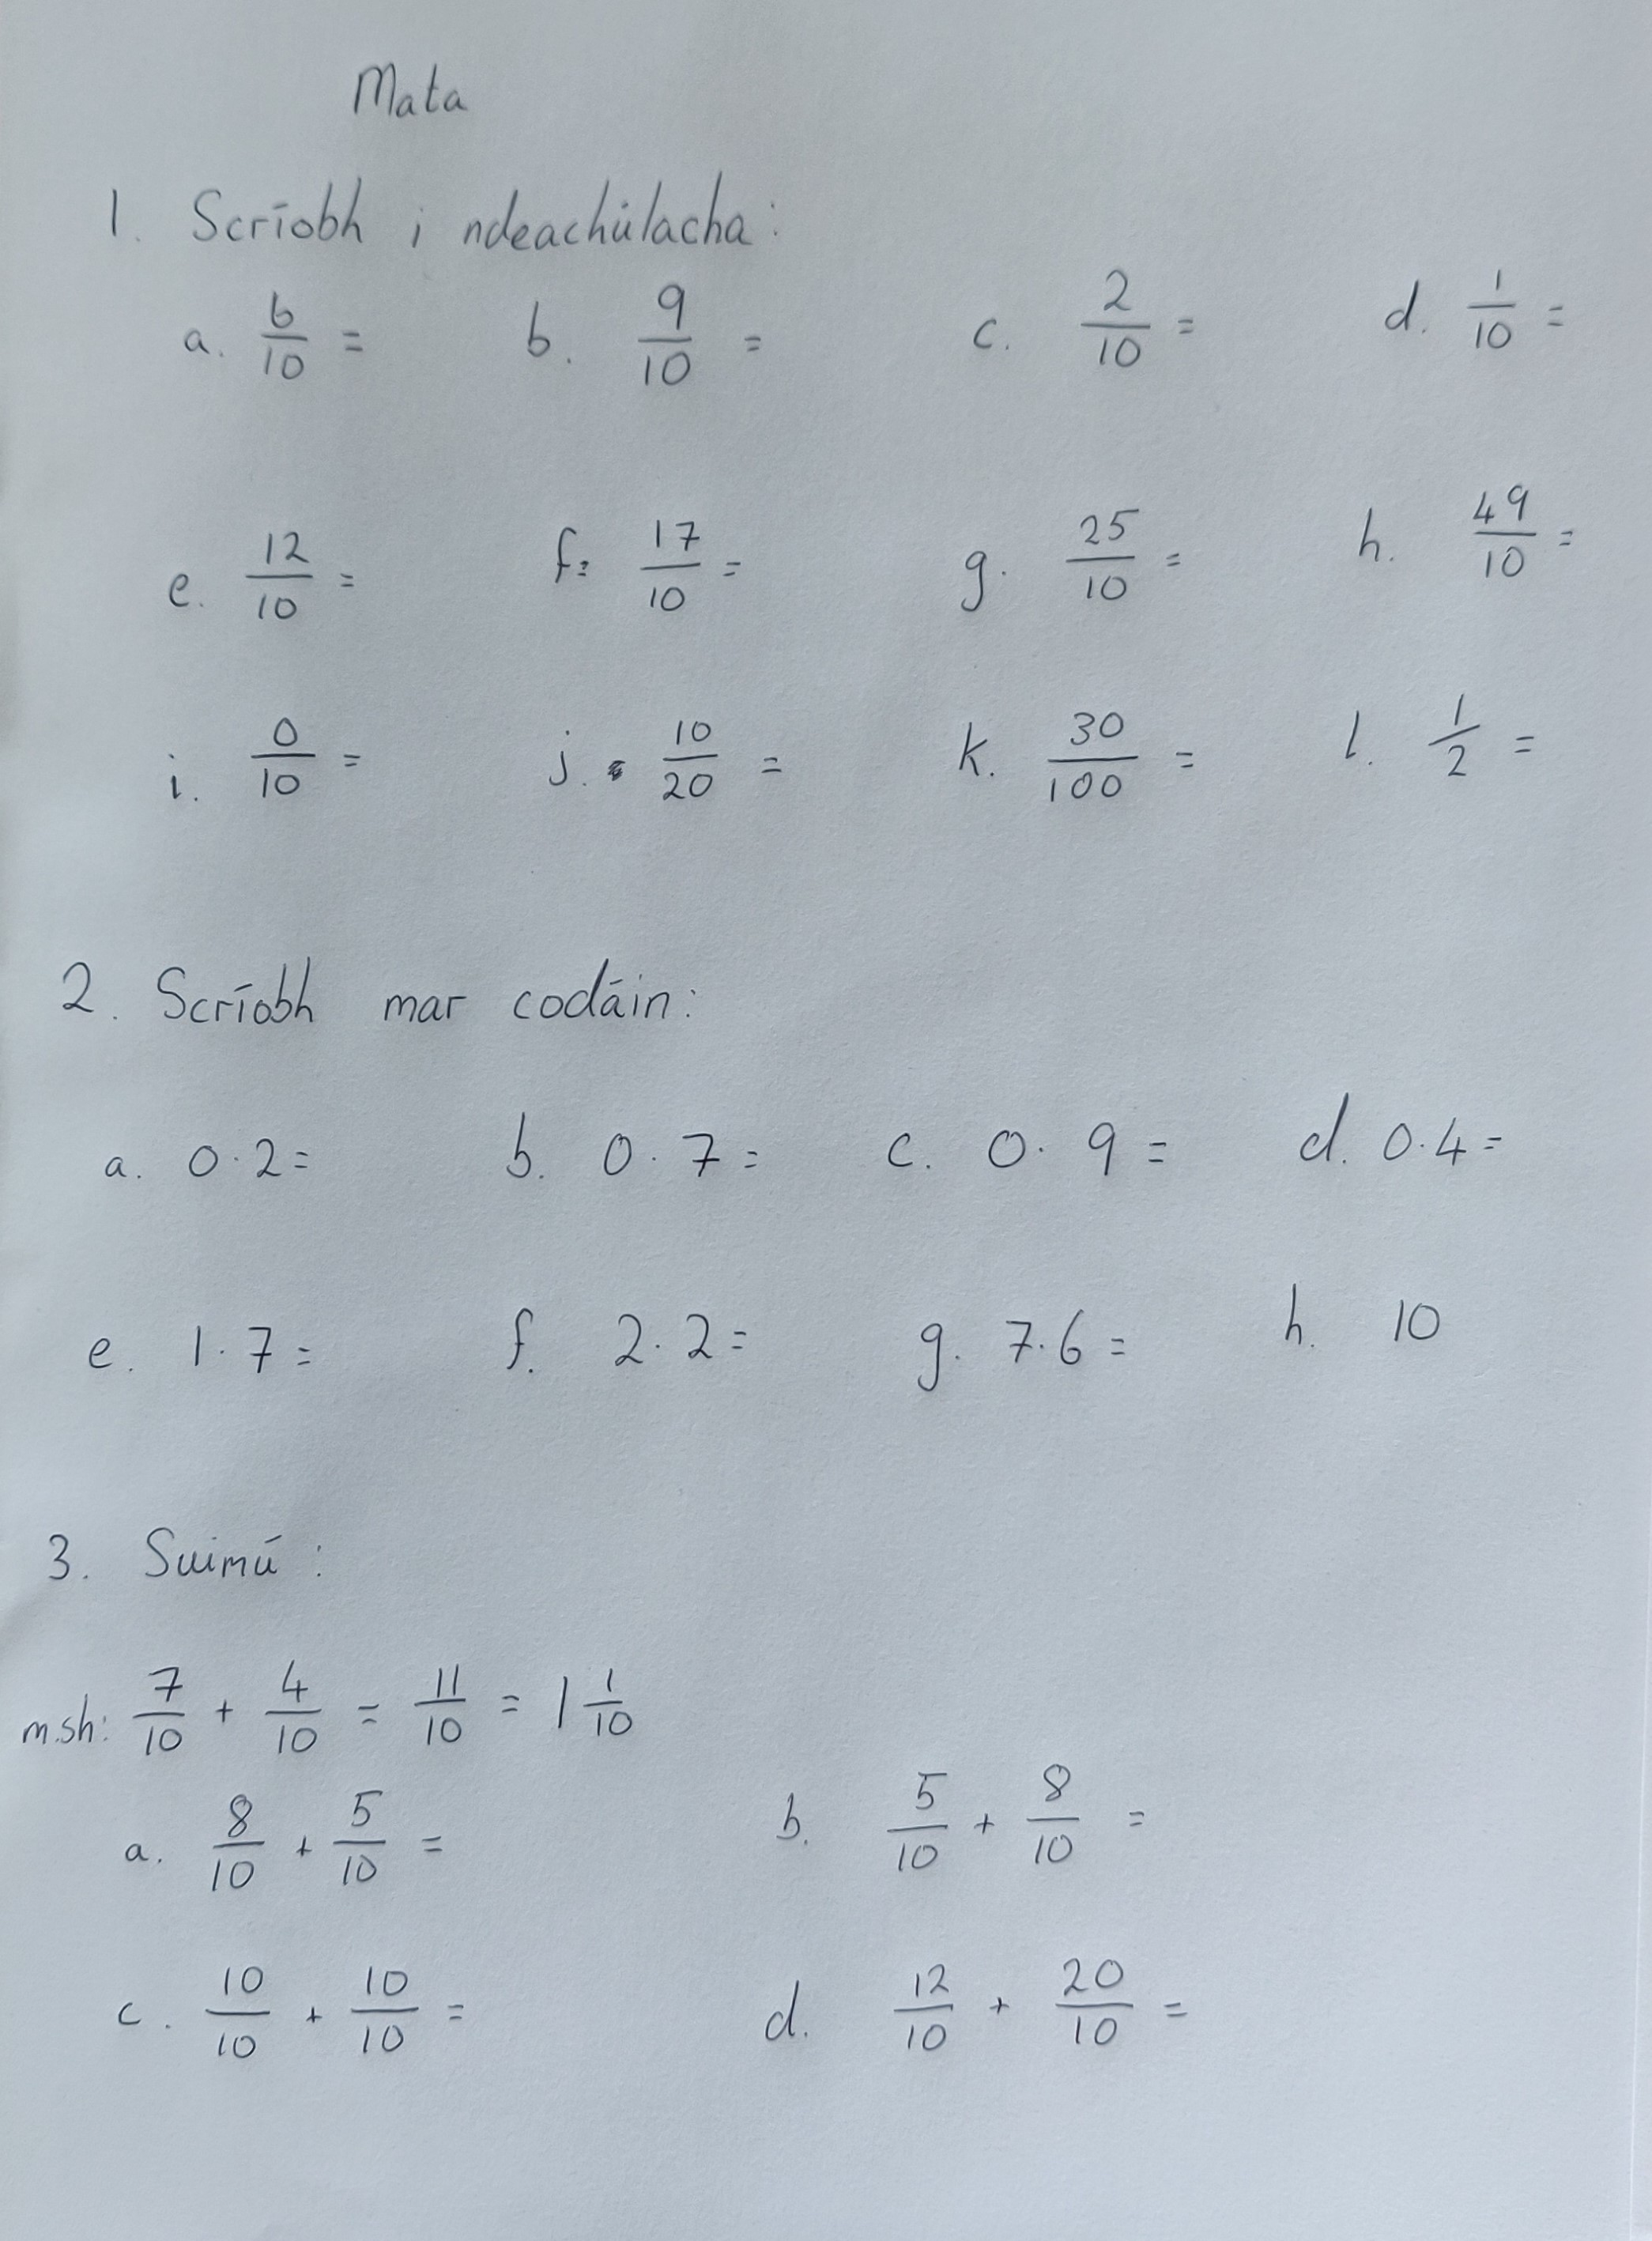 Mata
1. Scríobh i ndeachúlacha:
a. 6/10 = b. 9/10 = c. 2/10 = d. 1/10 =
e. 12/10 = f. 17/10 = g. 25/10 = h. 49/10 =
i. 0/10 = j. 10/20 = k. 30/100 = l. 1/2 =
2. Scríobh mar codáin:
a. 0.2= b. 0.7= c. 0.9= d. 0.4=
e. 1.7= f. 2.2= g. 7.6= h. 10
3. Suimú:
m.sh: 7/10 + 4/10 = 11/10 = 1 1/10
a. 8/10 + 5/10 = b. 5/10 + 8/10 =
c. 10/10 + 10/10 = d. 12/10 + 20/10 =